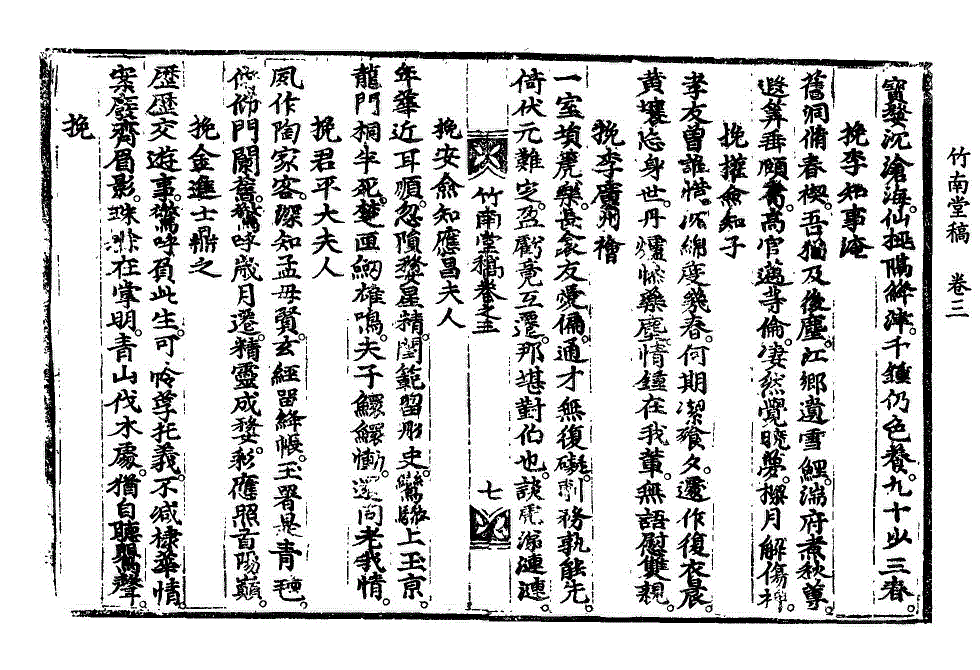 竹南堂稿 卷三
寶婺沉滄海仙輀隔絳津千鍾仍色養九十以三春
挽李知事淹
舊洞脩春禊吾猶及後塵江鄉遺雪鯉湍府煮秋蓴
遐筭垂頤耈高官邁等倫凄然覺曉夢攬月解傷神
挽權僉知子
孝友曾誰惜沉綿度幾春何期潔飱夕還作復衣晨
黃壤忘身世丹爐㤼藥塵情鍾在我輩無語慰雙親
挽李廣州襘
一室塤箎樂長衾友愛偏通才無復礙劇務孰能先
倚伏元難定盈虧竟互遷那堪對伯也談虎淚漣漣
竹南堂稿卷之三 七
挽安僉知應昌夫人
年華近耳順忽隕婺星精閨範留彤史鸞驂上玉京
龍門桐半死楚匣劒雄鳴夫子鰥鰥慟還同老我情
挽君平大夫人
夙作陶家客深知孟母賢玄經留絳帳玉署是青氈
門闌舊驚呼歲月遷精靈成婺彩應照首陽巓
挽金進士鼎之
歷歷交遊事驚呼負此生可怜尊托義不减棣華情
案廢齊眉影珠在掌明青山伐木處猶自聽鶯聲
挽